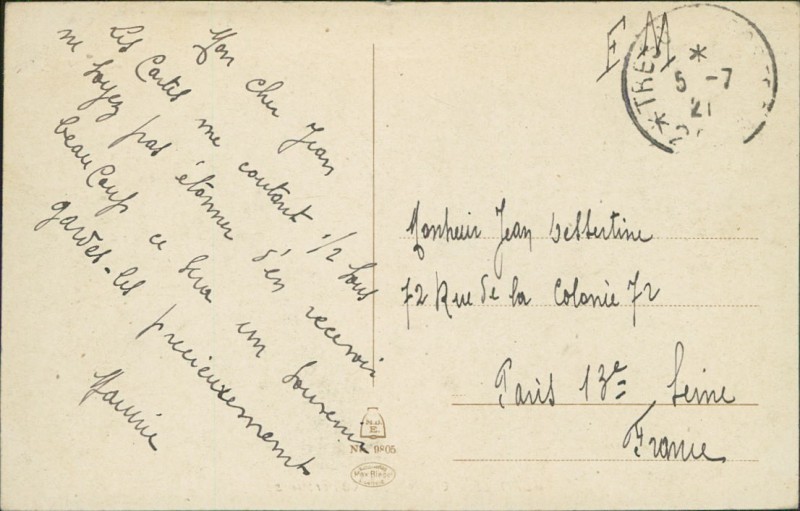 Mon cher Jean
Les Cartes me coutant 1/2 sous
ne soyez pas étonner d'en recevoir
beaucoup ce sera un souvenir
gardes-les precieusement
Maurice
F M
* TRES *
5 -7
21
Monsieur Jean Debertine
72 Rue de la Colonie 72
Paris 13e Seine
France
E.
No 9805